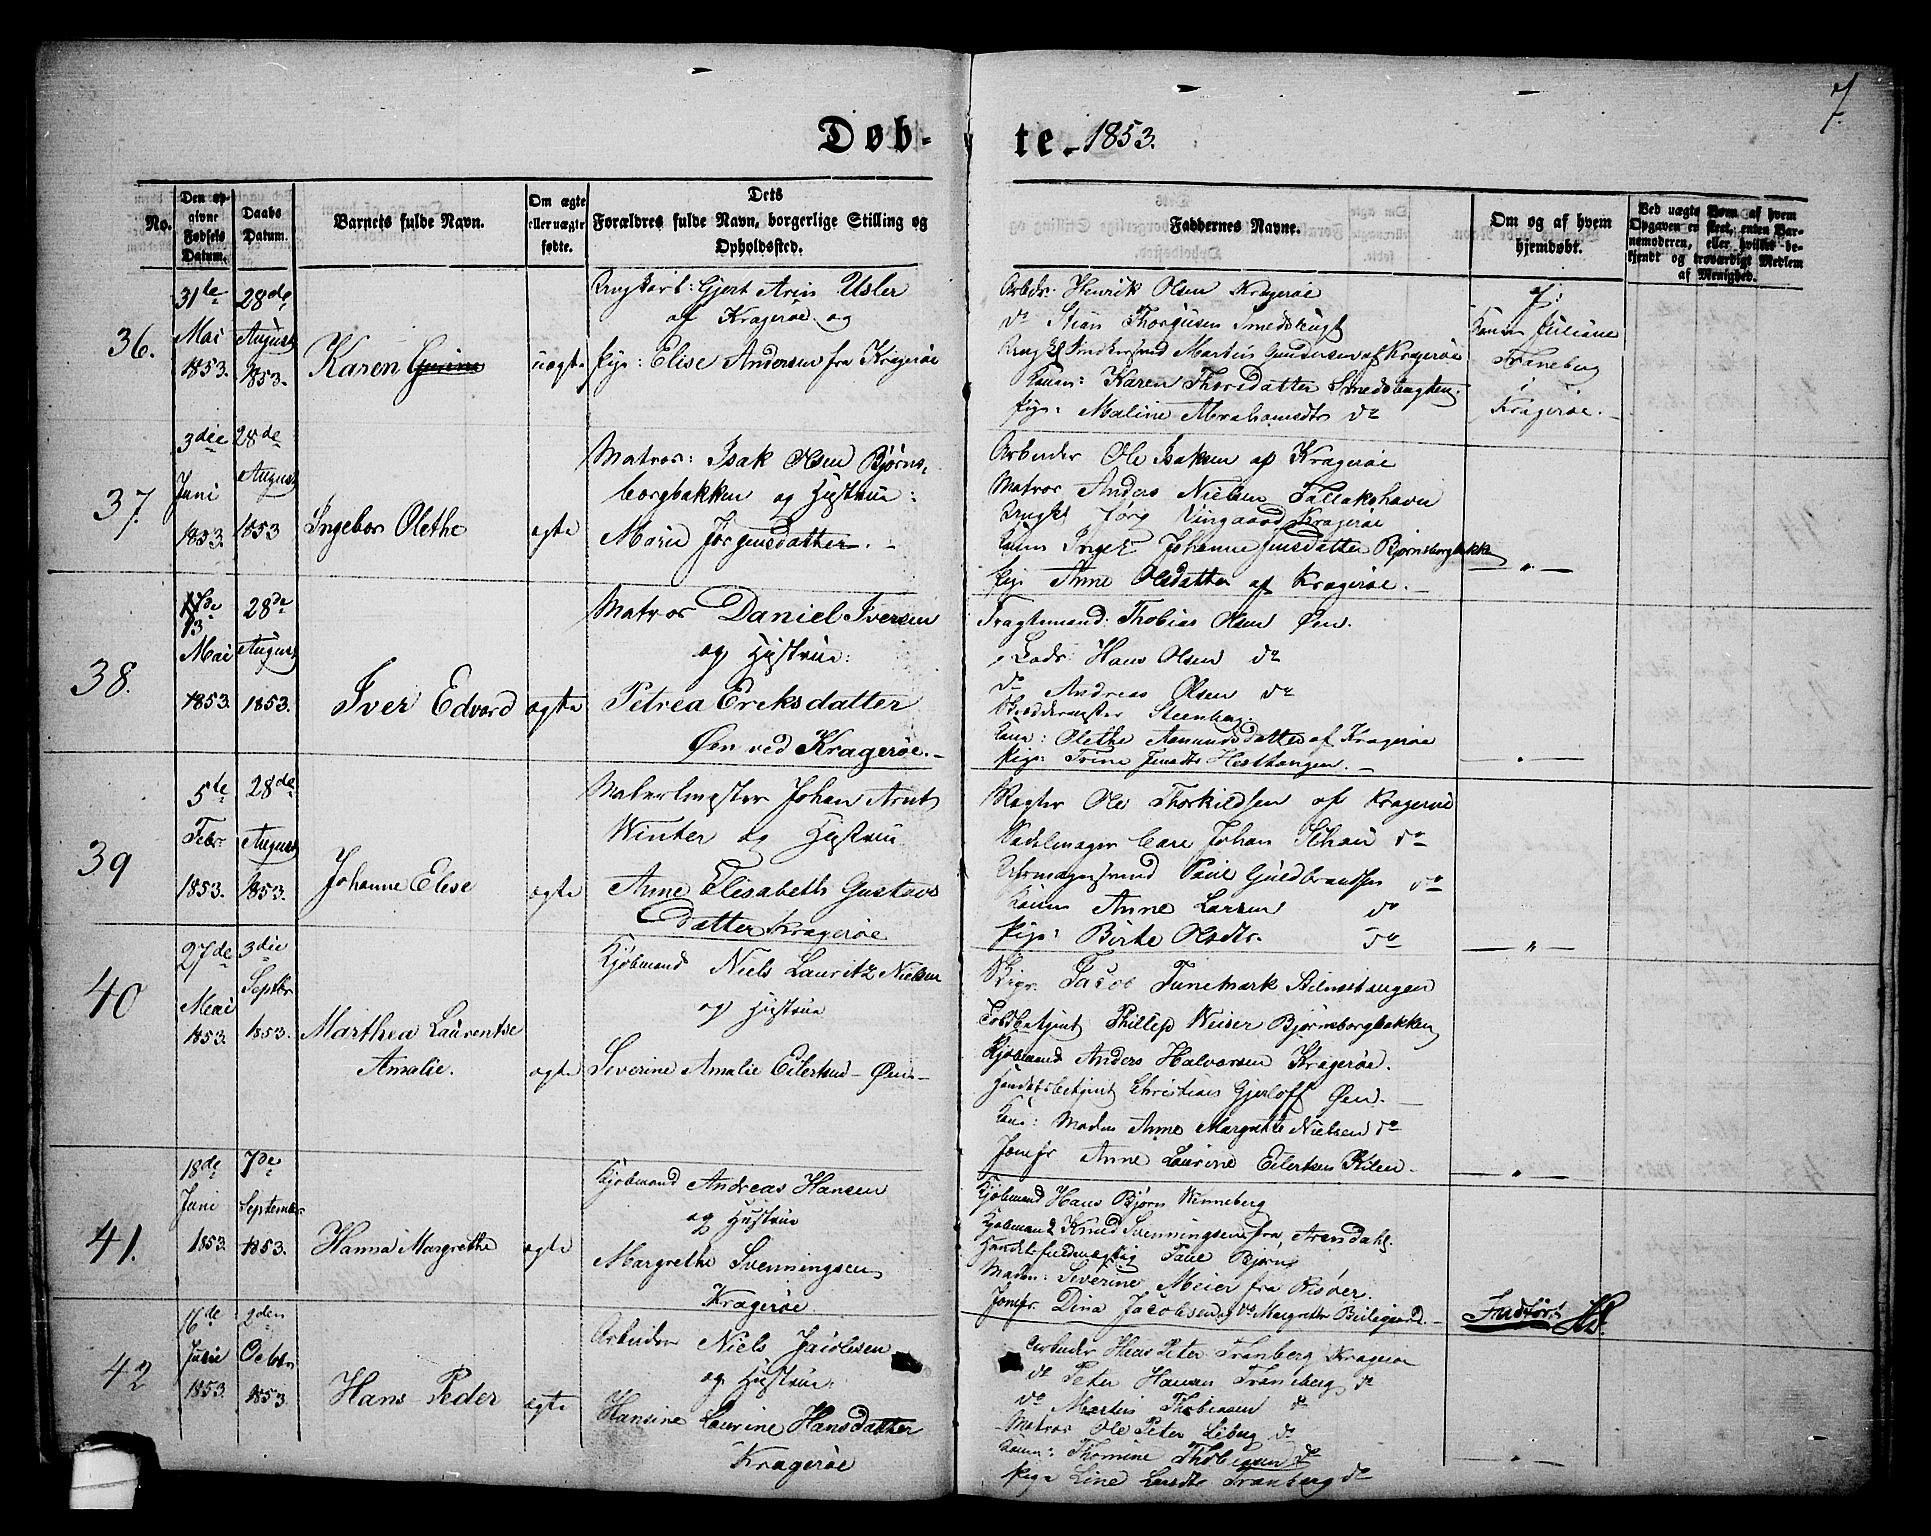 7.
Døb- te. 1853.
No.
Den opgivne Fødsels Datum.
Daabs Datum.
Barnets fulde Navn.
Om ægte eller uægte fødte.
Dets Forældres fulde Navn, borgerlige Stilling og Opholdssted.
Faddernes Navne.
Om og af hvem hjemdøbt.
Ved uægte Børn af hvem Opgaven er skeet, enten Barnemoderen, eller hvilket bekjendt og troværdigt Medlem af Menighed.
36.
31te Mai 1853.
28de August 1853.
Karen
uægte
Gjert Arin Usler
af Kragerøe og
Pige: Elise Andersen fra Kragerøe
Arbdr. Henrik Olsen Kragerøe
do Stian Thorgusen Smedsbugt
Martin Gundersen af Kragerøe
Karen Thorsdatter Smedsbugten.
Pige: Maline Abrahamsdtr do
af:
Juliane
Traneberg
i
Kragerøe.
37.
3die Juni 1853.
28de August 1853
Ingebor Olethe
ægte
Matros: Isak Olsen Bjørns-
borgbakken og Hustrue:
Marie Jørgensdatter.
Arbeider Ole Isaksen af Kragerøe
Matros Anders Nielsen Tallakshavn
Vingaard Kragerøe
Inger Johanne Jensdatter Bjørnsborgbakk
Pige Anne Olsdatter af Kragerøe.
38.
13 Mai 1853.
28de August 1853.
Iver Edvard
ægte
Matros Daniel Iversen
og Hustrue:
Petrea Eriksdatter
Øen ved Kragerøe.
Fragtemand: Thobias Olsen Øen.
Lods: Hans Olsen do
do Andreas Olsen do
Steenberg.
Kone: Olethe Asmundsdatter af Kragerøe
Pige: Trine
39
5te Febr. 1853.
28de August 1853.
Johanne Elise
ægte
Malermester Johan Arnt
Winter og Hustrue
Anne Elisabeth Gustavs
Datter Kragerøe
Vægter Ole Thorkildsen af Kragerøe
Sadelmager Carl Johan Schau do
Uhrmagersvend Paul Guldbrandsen do
Anne Larsen do
Pige: Birte Olsdtr. do
40
27de Mai 1853.
3die Septbr 1853.
Marthea Laurentse
Amalie.
ægte
Kjøbmand Niels Lauritz Nielsen
og Hustrue
Severine Amalie Eilertsen - Øen
Jacob Tunemark
Toldbetjent Phillip Weiser Bjørnsborgbakken
Kjøbmand Anders Halvorsen Kragerøe.
Handelsbetjent Christian Gjerloff Øen.
Madm Anne Margrethe Nielsen do
Jomfr Anne Laurine Eilertsen Kilen
41.
18de Juni 1853.
7de September 1853.
Hanna Margrethe
ægte
Kjøbmand Andreas Hansen
og Hustrue
Margrethe Svenningsen
Kragerøe.
Kjøbmand Hans Bjørn Wenneberg
Kjøbmand Knud Svenningsen fra Arendahl.
Handelsfuldmægtig Paul Bjørn
Madm: Severine Meier fra Risøer.
Jomfr. Dina Jacobsen og do Margrethe
Indført
42
16de 1853.
2den Octbr 1853
Hans Peder
ægte
Arbeider Niels Jacobsen
og Hustrue
Hansine Laurine Hansdatter
Kragerøe
Arbeider Hans Peter Tranberg Kragerøe
do Peter Hansen Traneberg do
do Martin Thobiassen do
Matros Ole Peter Liberg do
Kone: Thomine Thobiesen do
Pige Line Larsdtr Tranberg do